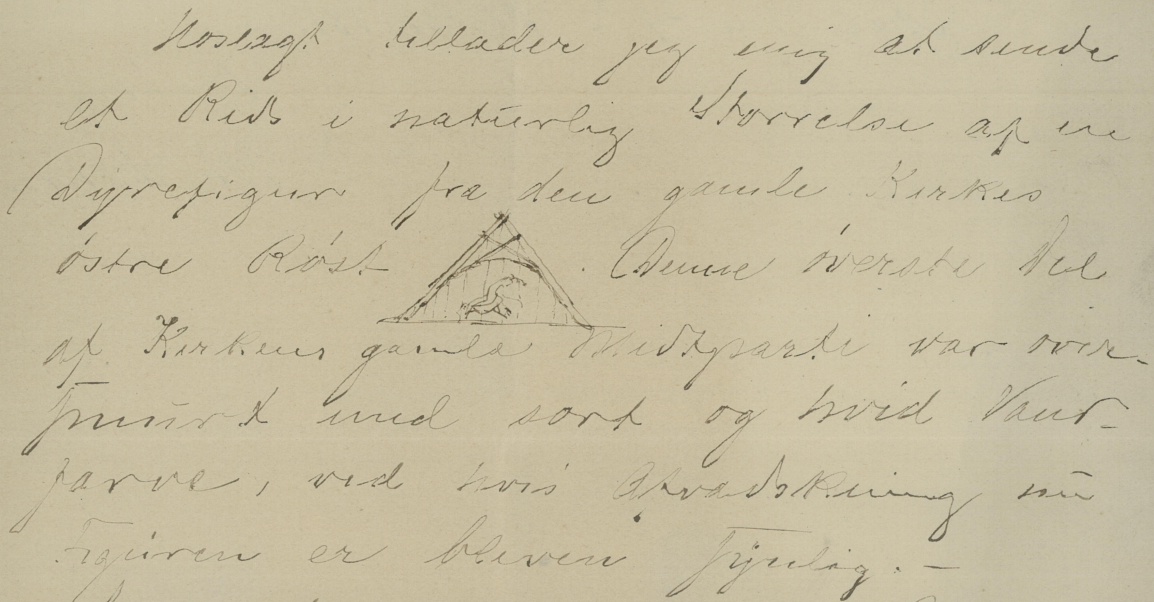 Hoslagt tillader jeg mig at sende
et Rids i naturlig Størrelse af en
Dyrefigur fra den gamle Kirkes
østre Røst . Denne øverste Del
af Kirkens gamle Midtparti var over-
smurt med sort og hvid Vand-
farve, ved hvis Afvadskning nu
Figuren er bleven synlig. —